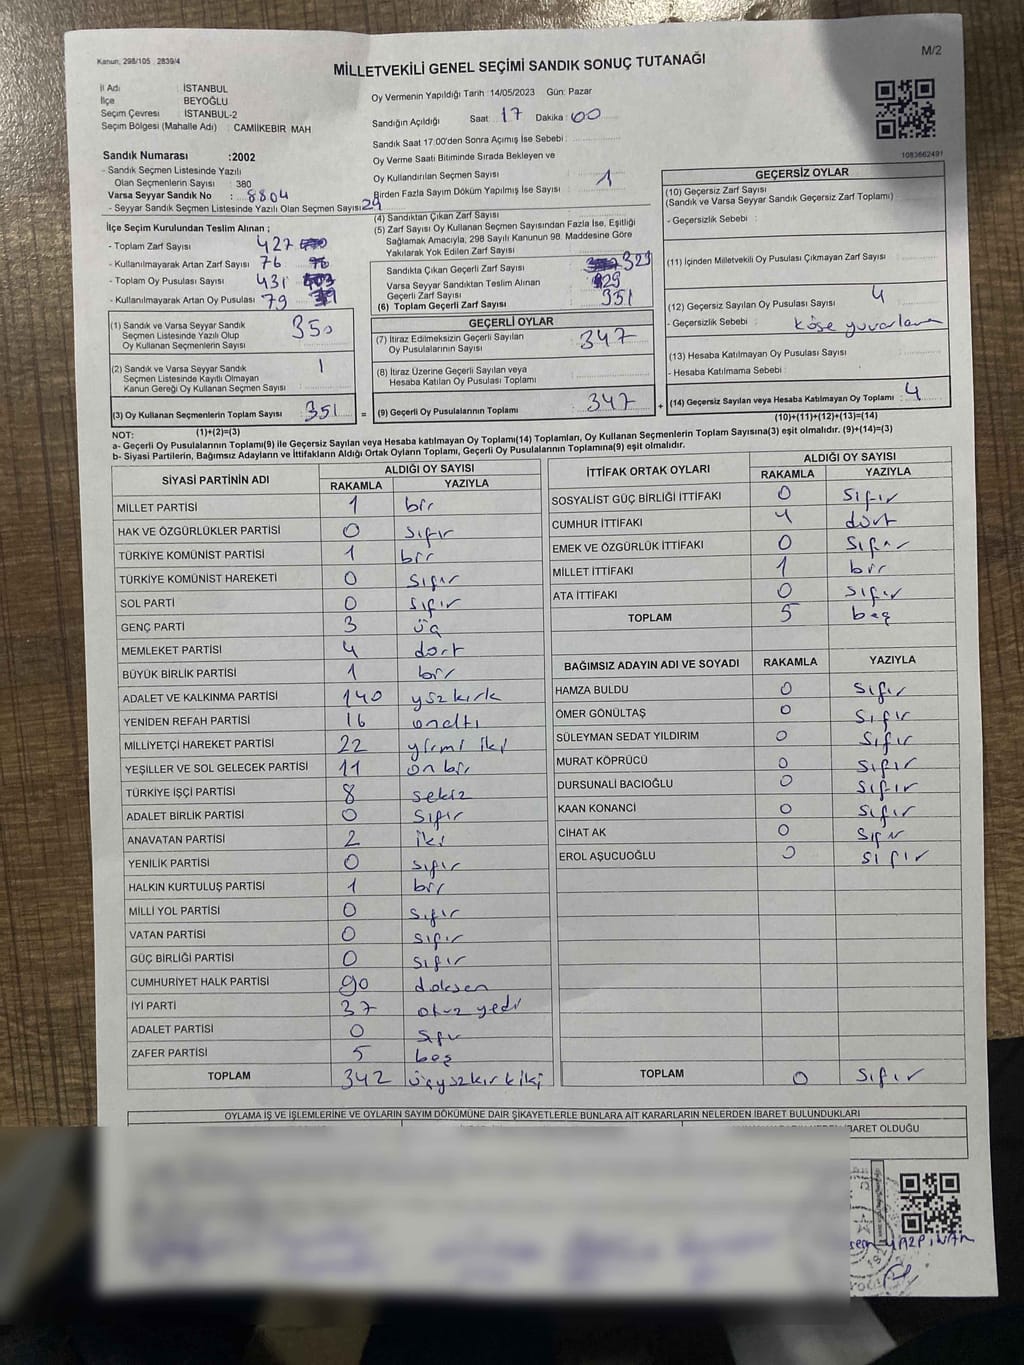 Kanun, 298/105 2839/4
M/2
MİLLETVEKİLİ GENEL SEÇİMİ SANDIK SONUÇ TUTANAĞI
İl Adı : İSTANBUL
İlçe BEYOĞLU
Seçim Çevresi : İSTANBUL-2
Seçim Bölgesi (Mahalle Adı) : CAMİİKEBİR MAH
Sandık Numarası :2002
- Sandık Seçmen Listesinde Yazılı
Olan Seçmenlerin Sayısı : 380
Varsa Seyyar Sandık No : 8804
- Seyyar Sandık Seçmen Listesinde Yazılı Olan Seçmen Sayısı: 29
İlçe Seçim Kurulundan Teslim Alınan ;
- Toplam Zarf Sayısı 427
- Kullanılmayarak Artan Zarf Sayısı : 76
- Toplam Oy Pusulası Sayısı : 431
- Kullanılmayarak Artan Oy Pusulası : 79
(1) Sandık ve Varsa Seyyar Sandık
Seçmen Listesinde Yazılı Olup
Oy Kullanan Seçmenlerin Sayısı 350
(2) Sandık ve Varsa Seyyar Sandık
Seçmen Listesinde Kayıtlı Olmayan
Kanun Gereği Oy Kullanan Seçmen Sayısı : 1
(3) Oy Kullanan Seçmenlerin Toplam Sayısı : 351 =
(1)+(2)=(3)
Oy Vermenin Yapıldığı Tarih : 14/05/2023 Gün: Pazar
Sandığın Açıldığı Saat : 17 Dakika : 00
Sandık Saat 17:00'den Sonra Açımış İse Sebebi :
Oy Verme Saati Bitiminde Sırada Bekleyen ve
Oy Kullandırılan Seçmen Sayısı : 1
Birden Fazla Sayım Döküm Yapılmış İse Sayısı :
(4) Sandıktan Çıkan Zarf Sayısı :
(5) Zarf Sayısı Oy Kullanan Seçmen Sayısından Fazla İse, Eşitliği
Sağlamak Amacıyla, 298 Sayılı Kanunun 98. Maddesine Göre
Yakılarak Yok Edilen Zarf Sayısı :
Sandıkta Çıkan Geçerli Zarf Sayısı : 323
Varsa Seyyar Sandıktan Teslim Alınan
Geçerli Zarf Sayısı : 29
(6) Toplam Geçerli Zarf Sayısı : 351
GEÇERLİ OYLAR
(7) İtiraz Edilmeksizin Geçerli Sayılan
Oy Pusulalarının Sayısı : 347
(8) İtiraz Üzerine Geçerli Sayılan veya
Hesaba Katılan Oy Pusulası Toplamı :
(9) Geçerli Oy Pusulalarının Toplamı : 347 +
1083662491
GEÇERSİZ OYLAR
(10) Geçersiz Zarf Sayısı
(Sandık ve Varsa Seyyar Sandık Geçersiz Zarf Toplamı) :
- Geçersizlik Sebebi :
(11) İçinden Milletvekili Oy Pusulası Çıkmayan Zarf Sayısı :
(12) Geçersiz Sayılan Oy Pusulası Sayısı : 4
- Geçersizlik Sebebi : köşe yuvarlama
(13) Hesaba Katılmayan Oy Pusulası Sayısı :
- Hesaba Katılmama Sebebi :
(14) Geçersiz Sayılan veya Hesaba Katılmayan Oy Toplamı : 4
(10)+(11)+(12)+(13)=(14)
NOT:
a- Geçerli Oy Pusulalarının Toplamı(9) ile Geçersiz Sayılan veya Hesaba katılmayan Oy Toplamı(14) Toplamları, Oy Kullanan Seçmenlerin Toplam Sayısına(3) eşit olmalıdır. (9)+(14)=(3)
b- Siyasi Partilerin, Bağımsız Adayların ve İttifakların Aldığı Ortak Oyların Toplamı, Geçerli Oy Pusulalarının Toplamına(9) eşit olmalıdır.
SİYASİ PARTİNİN ADI ALDIĞI OY SAYISI
RAKAMLA YAZIYLA
MİLLET PARTİSİ 1 bir
HAK VE ÖZGÜRLÜKLER PARTİSİ 0 sıfır
TÜRKİYE KOMÜNİST PARTİSİ 1 bir
TÜRKİYE KOMÜNİST HAREKETİ 0 sıfır
SOL PARTİ 0 sıfır
GENÇ PARTİ 3 üç
MEMLEKET PARTİSİ 4 dört
BÜYÜK BİRLİK PARTİSİ 1 bir
ADALET VE KALKINMA PARTİSİ 140 yüzkırk
YENİDEN REFAH PARTİSİ 16 onaltı
MİLLİYETÇİ HAREKET PARTİSİ 22 yirmi iki
YEŞİLLER VE SOL GELECEK PARTİSİ 11 on bir
TÜRKİYE İŞÇİ PARTİSİ 8 sekiz
ADALET BİRLİK PARTİSİ 0 sıfır
ANAVATAN PARTİSİ 2 iki
YENİLİK PARTİSİ 0 sıfır
HALKIN KURTULUŞ PARTİSİ 1 bir
MİLLİ YOL PARTİSİ 0 sıfır
VATAN PARTİSİ 0 sıfır
GÜÇ BİRLİĞİ PARTİSİ 0 sıfır
CUMHURİYET HALK PARTİSİ 90 doksan
İYİ PARTİ 37 otuz yedi
ADALET PARTİSİ 0 sıfır
ZAFER PARTİSİ 5 beş
TOPLAM 342 üçyüzkırkiki
İTTİFAK ORTAK OYLARI ALDIĞI OY SAYISI
RAKAMLA YAZIYLA
SOSYALİST GÜÇ BİRLİĞİ İTTİFAKI 0 sıfır
CUMHUR İTTİFAKI 4 dört
EMEK VE ÖZGÜRLÜK İTTİFAKI 0 sıfır
MİLLET İTTİFAKI 1 bir
ATA İTTİFAKI 0 sıfır
TOPLAM 5 beş
BAĞIMSIZ ADAYIN ADI VE SOYADI RAKAMLA YAZIYLA
HAMZA BULDU 0 sıfır
ÖMER GÖNÜLTAŞ 0 sıfır
SÜLEYMAN SEDAT YILDIRIM 0 sıfır
MURAT KÖPRÜCÜ 0 sıfır
DURSUNALİ BACIOĞLU 0 sıfır
KAAN KONANCİ 0 sıfır
CİHAT AK 0 sıfır
EROL AŞUCUOĞLU 0 sıfır
TOPLAM 0 sıfır
OYLAMA İŞ VE İŞLEMLERİNE VE OYLARIN SAYIM DÖKÜMÜNE DAİR ŞİKAYETLERLE BUNLARA AİT KARARLARIN NELERDEN İBARET BULUNDUKLARI
İBARET OLDUĞU